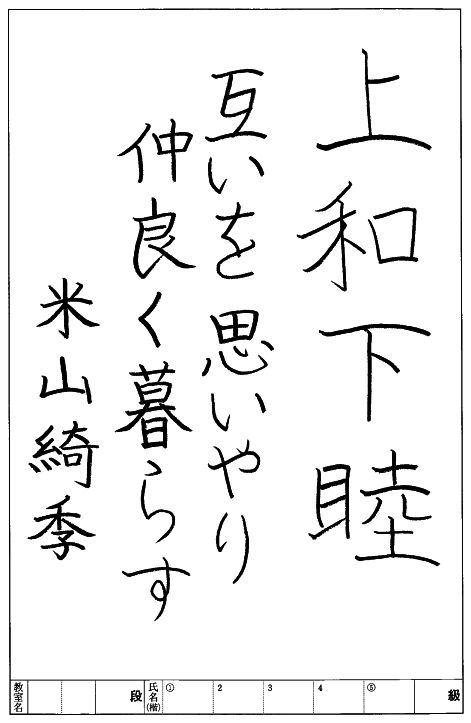 上和下睦
互いを思いやり
仲良く暮らす
米山綺季
教室名 段 氏名(楷) ① 2 3 4 ⑤ 級